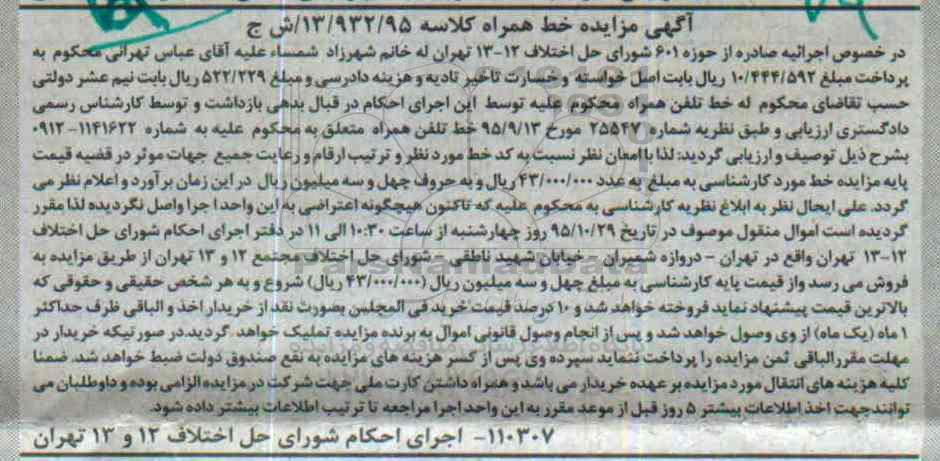 آگهی مزایده خط همراه کلاسه ۱۳/۹۳۲/۹۵/ش ج
در خصوص اجرائیه صادره از حوزه ۶۰۱ شورای حل اختلاف ۱۲-۱۳ تهران له خانم شهرزاد شمساء علیه آقای عباس تهرانی محکوم به
پرداخت مبلغ ۱۰/۴۴۴/۵۹۲ ریال بابت اصل خواسته و خسارت تاخیر تادیه و هزینه دادرسی و مبلغ ۵۲۲/۲۲۹ ریال بابت نیم عشر دولتی
حسب تقاضای محکوم له خط تلفن همراه محکوم علیه توسط این اجرای احکام در قبال بدهی بازداشت و توسط کارشناس رسمی
دادگستری ارزیابی و طبق نظریه شماره ۲۵۵۴۷ مورخ ۹۵/۹/۱۳ خط تلفن همراه متعلق به محکوم علیه به شماره ۱۱۴۱۶۲۲-۰۹۱۲
بشرح ذیل توصیف و ارزیابی گردید: لذا با امعان نظر نسبت به کد خط مورد نظر و ترتیب ارقام و رعایت جمیع جهات موثر در قضیه قیمت
پایه مزایده خط مورد کارشناسی به مبلغ به عدد ۴۳/۰۰۰/۰۰۰ ریال و به حروف چهل و سه میلیون ریال در این زمان برآورد و اعلام نظر می
گردد. علی ایحال نظر به ابلاغ نظریه کارشناسی به محکوم علیه که تاکنون هیچگونه اعتراضی به این واحد اجرا واصل نگردیده لذا مقرر
گردیده است اموال منقول موصوف در تاریخ ۹۵/۱۰/۲۹ روز چهارشنبه از ساعت ۱۰:۳۰ الی ۱۱ در دفتر اجرای احکام شورای حل اختلاف
۱۲-۱۳ تهران واقع در تهران - دروازه شمیران - خیابان شهید ناطقی - شورای حل اختلاف مجتمع ۱۲ و ۱۳ تهران از طریق مزایده به
فروش می رسد و از قیمت پایه کارشناسی به مبلغ چهل و سه میلیون ریال (۴۳/۰۰۰/۰۰۰ ریال) شروع و به هر شخص حقیقی و حقوقی که
بالاترین قیمت پیشنهاد نماید فروخته خواهد شد و ۱۰ درصد قیمت خرید فی المجلس بصورت نقد از خریدار اخذ و الباقی ظرف حداکثر
۱ ماه (یک ماه) از وی وصول خواهد شد و پس از انجام وصول قانونی اموال به برنده مزایده تملیک خواهد گردید. در صورتیکه خریدار در
مهلت مقرر الباقی ثمن مزایده را پرداخت ننماید سپرده وی پس از کسر هزینه های مزایده به نفع صندوق دولت ضبط خواهد شد. ضمنا
کلیه هزینه های انتقال مورد مزایده بر عهده خریدار می باشد و همراه داشتن کارت ملی جهت شرکت در مزایده الزامی بوده و داوطلبان می
توانند جهت اخذ اطلاعات بیشتر ۵ روز قبل از موعد مقرر به این واحد اجرا مراجعه تا ترتیب اطلاعات بیشتر داده شود.
۱۱۰۳۰۷- اجرای احکام شورای حل اختلاف ۱۲ و ۱۳ تهران
ParsNamadData